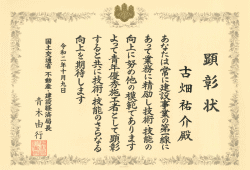 顕彰状
古畑祐介殿
あなたは常に建設事業の第一線に
あって業務に精励し技術・技能の
向上に努め他の模範であります
よって青年優秀施工者として顕彰
すると共に技術・技能のさらなる
向上を期待します
令和二年十月九日
国土交通省 不動産・建設経済局長
青木由行